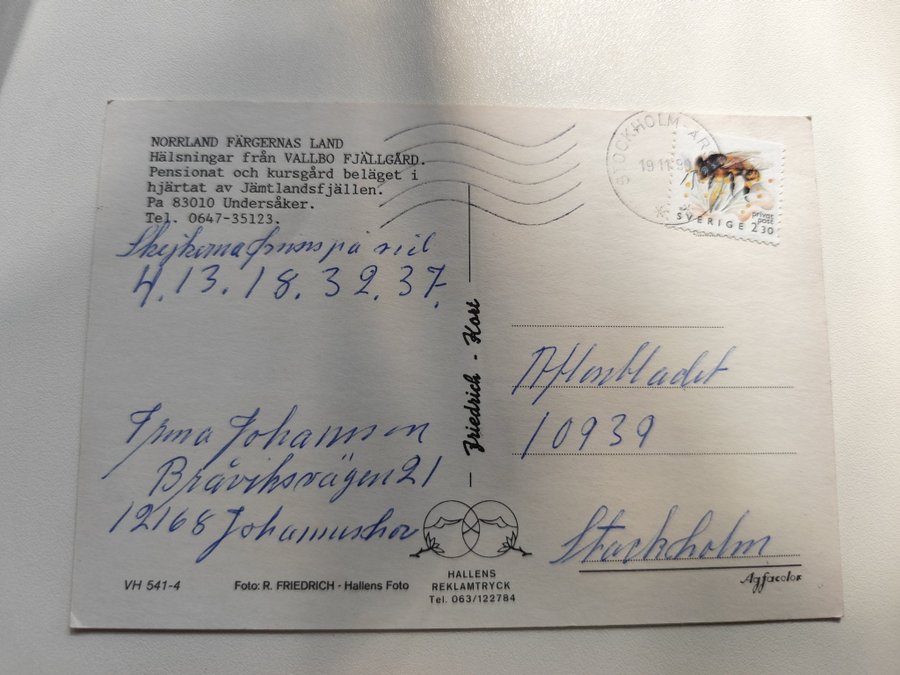 NORRLAND FÄRGERNAS LAND
Hälsningar från VALLBO FJÄLLGÅRD.
Pensionat och kursgård beläget i
hjärtat av Jämtlandsfjällen.
Pa 83010 Undersåker.
Tel. 0647-35123.
på sid
4. 13. 18. 32. 37.
Irma Johansson
Bråviksvägen 21
12168 Johanneshov
VH 541-4
Foto: R. FRIEDRICH - Hallens Foto
HALLENS
REKLAMTRYCK
Tel. 063/122784
Friedrich - Kort
STOCKHOLM-
19 11 90
privat
post
SVERIGE 2.30
Aftonbladet
10939
Stockholm
Agfacolor